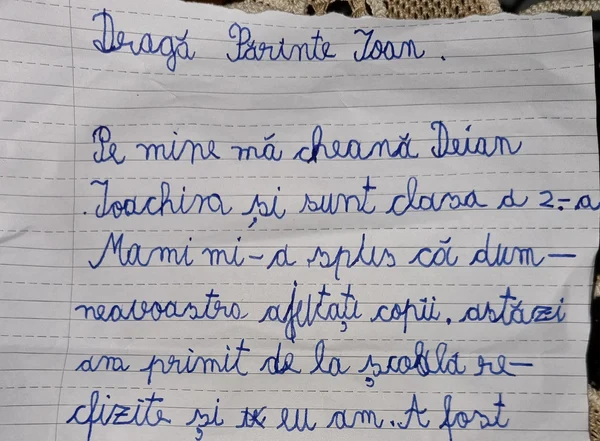 Dragă Părinte Ioan.
Pe mine mă cheană Deian
Ioachim și sunt clasa a 2-a
Mami mi-a splus că dum-
neavoastro ajutați copii. astăzi
am primit de la școala re-
cfizite și eu am. A fost